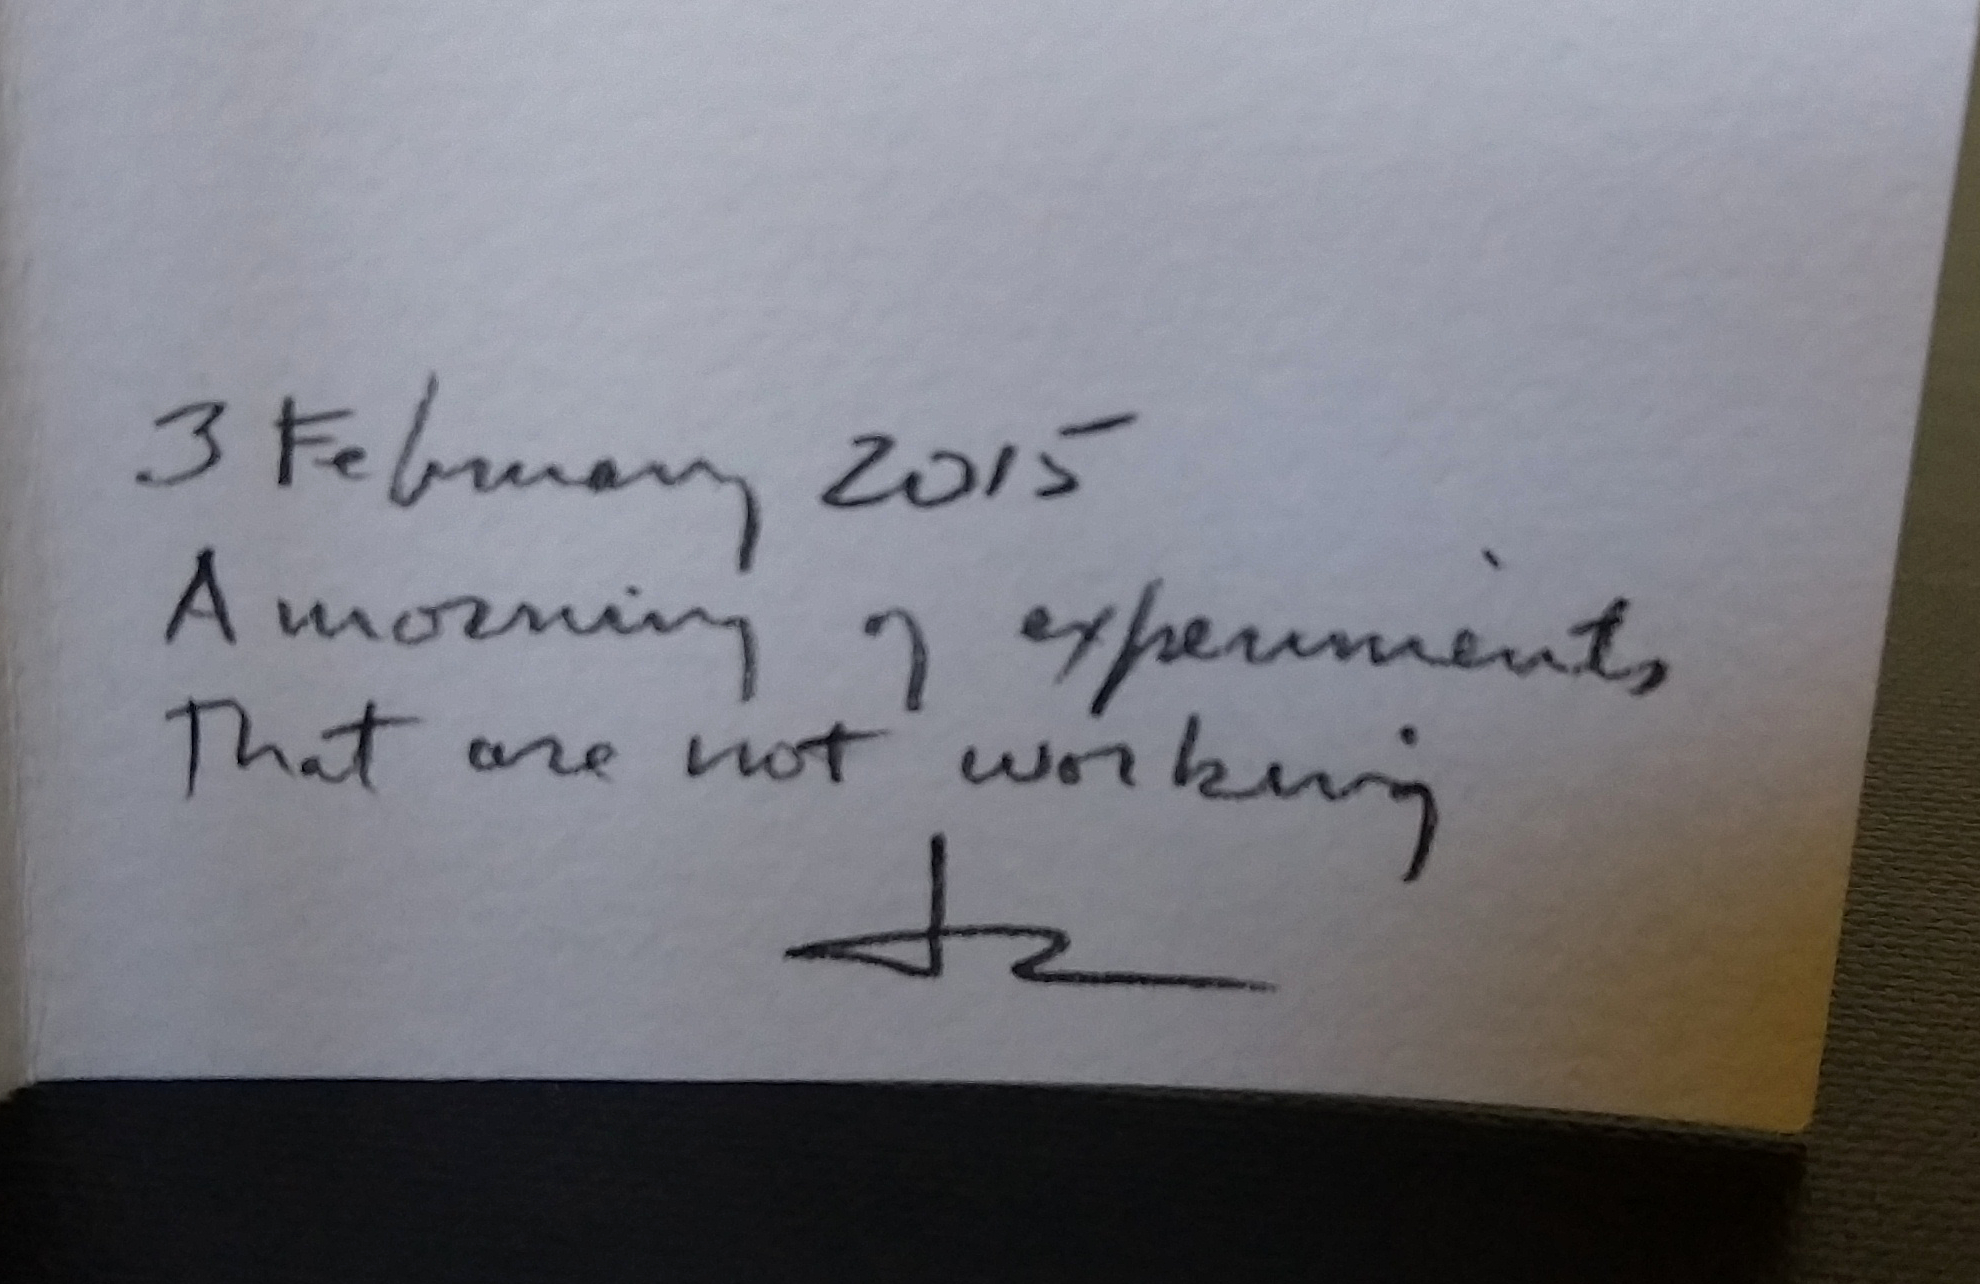 3 February 2015
A morning of experiments
That are not working